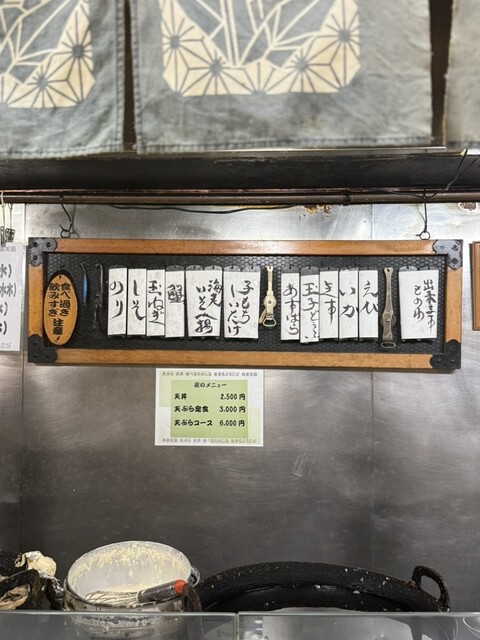 出来ます
えび
いか
きす
玉子どうふ
あすぱら
子もち
しいたけ
海老
いそべ揚
蟹
玉ねぎ
しそ
のり
食べ過ぎ
飲みすぎ 注意!
夜のメニュー
天丼 2.500円
天ぷら定食 3.000円
天ぷらコース 6.000円